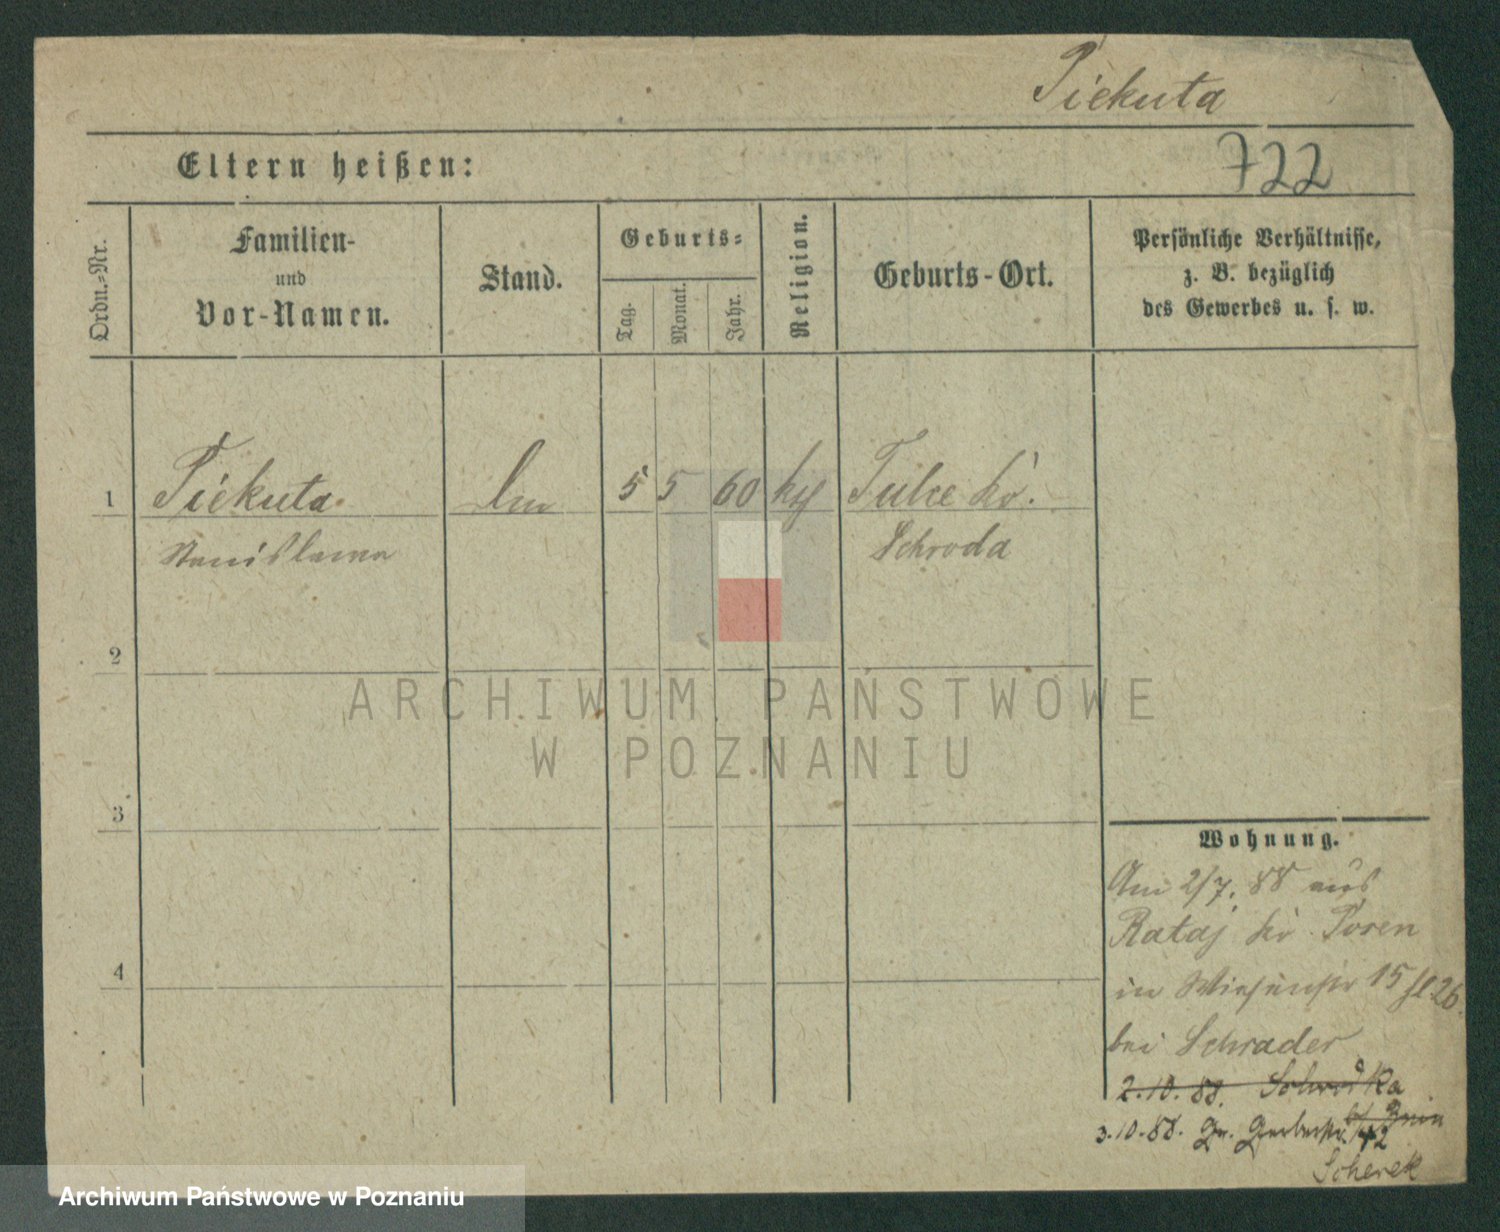 Piekuta
Eltern heißen:
722
Ordn.-Nr.
Familien-
und
Vor-Namen.
Stand.
Geburts-
Tag.
Monat.
Jahr.
Religion.
Geburts-Ort.
Persönliche Verhältnisse,
z. B. bezüglich
des Gewerbes u. s. w.
1
Piekuta
5 5 60
Tulce Kr.
Stanislawa
Schroda
2
3
4
Wohnung.
Am 2/7. 88 aus
Rataj Kr. Posen
in Wiesenstr 15
bei Schrader
2.10.88.
3.10.88. Gr. Gerberstr.
Scherek
ARCHIWUM PAŃSTWOWE
W POZNANIU
Archiwum Państwowe w Poznaniu